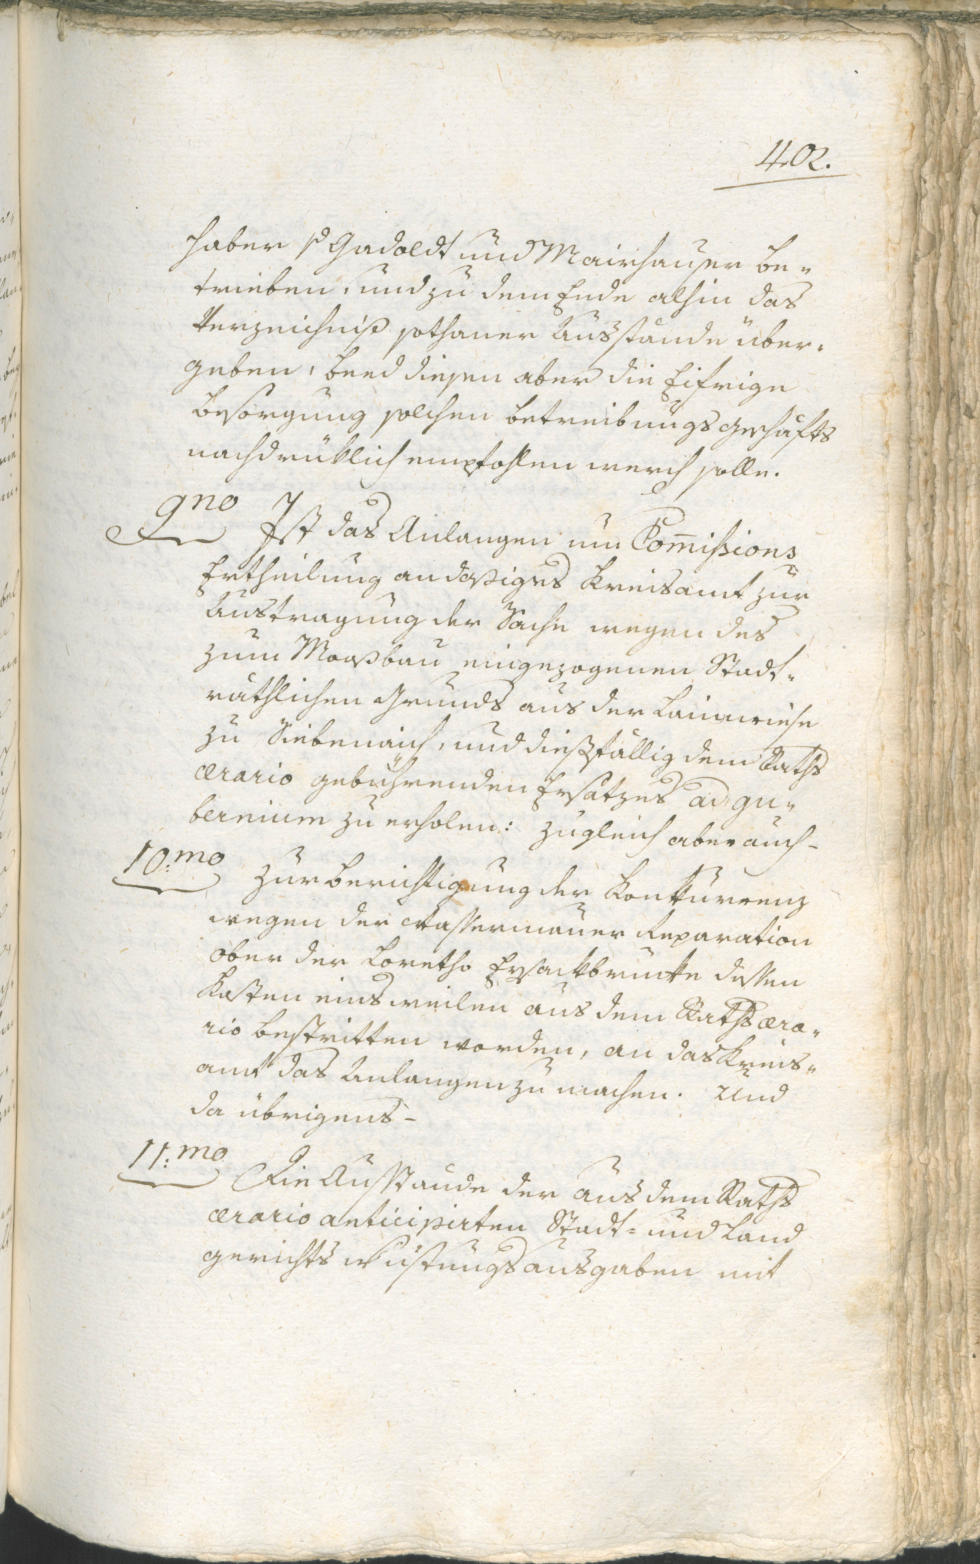 402.
haber sd Gadoldt und Mairhauser be-
trieben, und zu dem Ende alhin das
Verzeichniß sothaner Ausstände über-
geben, beed diesen aber die Eifrige
besorgung solchen betreibungsgeschäfts
nachdrüklich empfohlen werdh solle.
9no Ist das Anlangen um Com̄ißions
Ertheilung an daßiges Kreisamt zur
Austragung der Sache wegen des
zum Moosbau eingezogenen Stadt-
räthlichen Grunds aus der Laimwiese
zu Siebenaich, und dießfällig dem Raths
ærario gebührenden Ersatzes ad gu-
bernium zu erholen: zugleich aber auch-
10.mo zur berichtigung der Konkurrenz
wegen der Wassermauer Reparation
ober der Loretho Eysackbrucke dessen
Kosten einsweilen aus dem Rathsæra-
rio bestritten worden, an das Kreis-
amt das Anlangen zu machen. Und
da übrigens-
11.mo Die Ausstände der aus dem Raths
ærario anticipirten Stadt- und Land
gerichts Wustungsausgaben mit